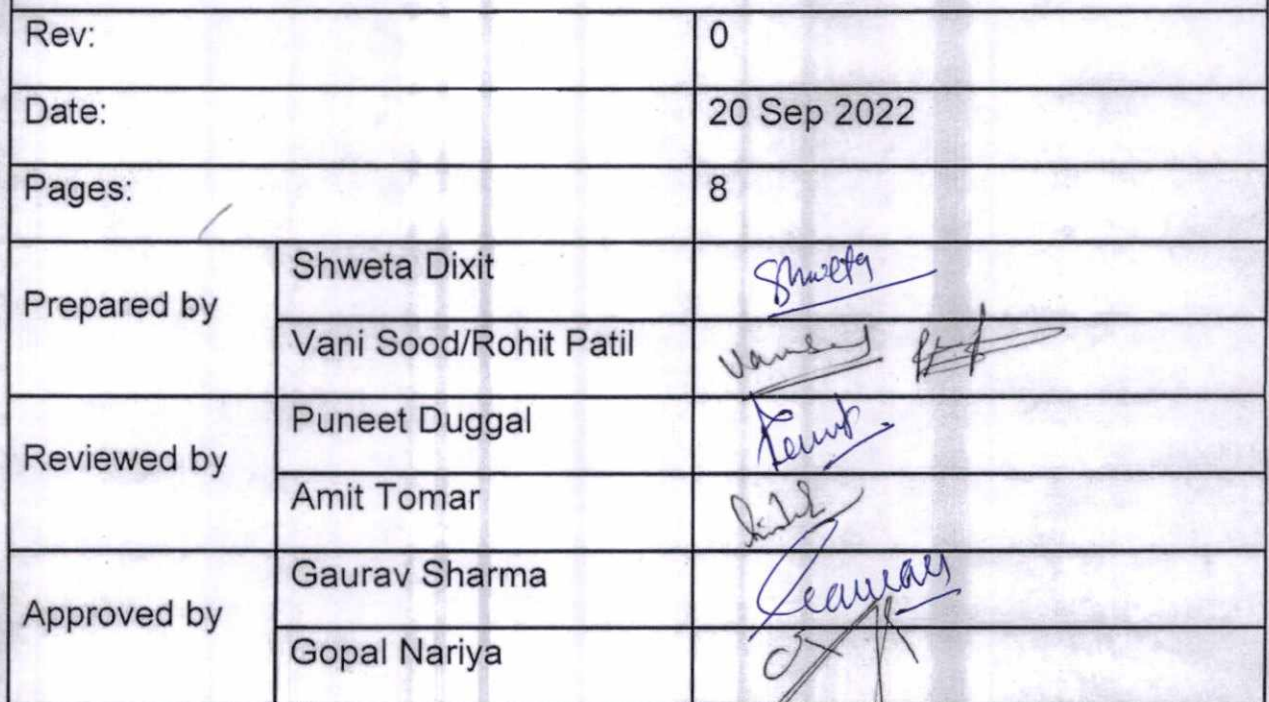 Rev: 0
Date: 20 Sep 2022
Pages: 8
Prepared by
Shweta Dixit Shweta
Vani Sood/Rohit Patil
Reviewed by
Puneet Duggal
Amit Tomar
Approved by
Gaurav Sharma Gaurav
Gopal Nariya